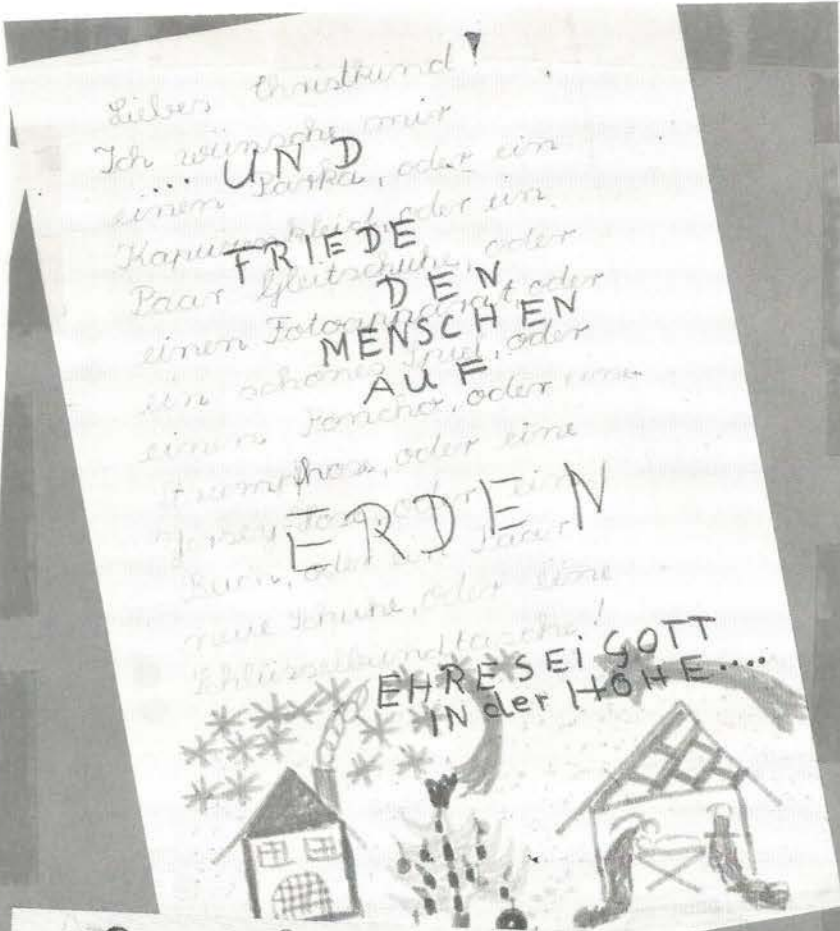 Liebes Christkind!
Ich wünsche mir
einen Parka, oder ein
Kapuzenkleid, oder ein
Paar Gleitschuhe, oder
einen Fotoapparat, oder
ein schönes Spiel, oder
einen Poncho, oder eine
Strumpfhose, oder eine
Jersey Hose, oder ein
Buch, oder ein Paar
neue Schuhe, oder eine
Schlüsselbundtasche!
... UND
FRIEDE
DEN
MENSCHEN
AUF
ERDEN
EHRE SEi GOTT
IN der HÖHE....